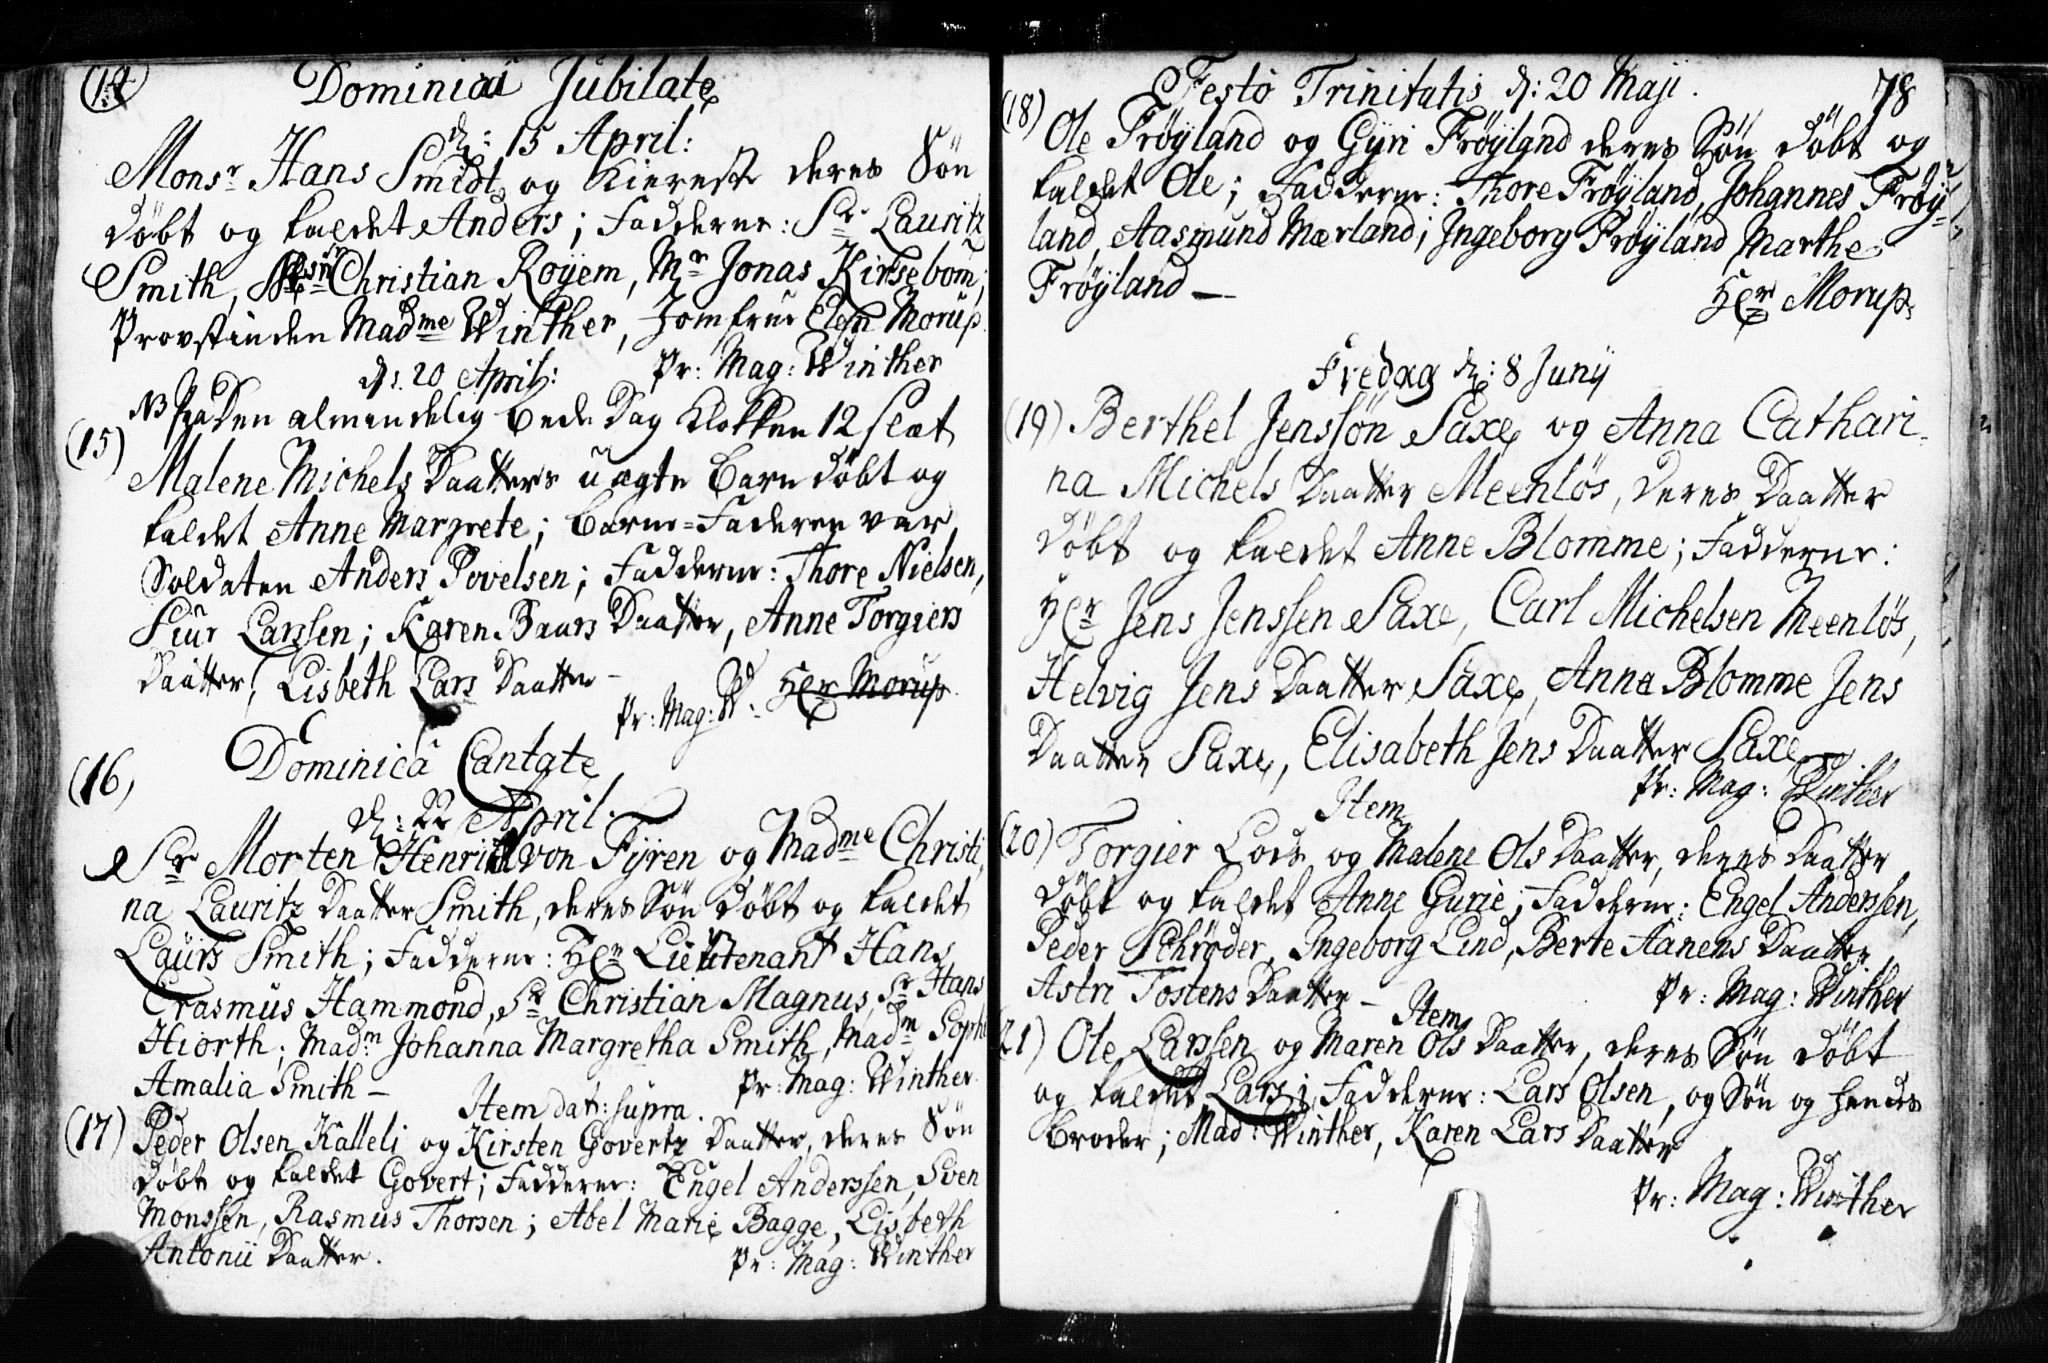 (14) Dominica Jubilate
d: 15 April:
Monsr Hans Smidt og Kiereste deres Søn
døbt og kaldet Anders; Fadderne: Sr Lauritz
Smith, Christian Royem, Mr Jonas Kirsebom;
Provstinden Madme Winther, Jomfrue Elen Morup.
Pr: Mag: Winther
d: 20 April:
NB Paa Den almindelig Bede Dag Klokken 12 slæt
(15)
Malene Michels Daatters uægte Barn døbt og
kaldet Anne Margrete; Barne=Faderen var
Soldaten Anders Povelsen; Fadderne: Thore Nielsen,
Siur Larssen; Karen Baars Daatter, Anne Torgiers
Daatter, Lisbeth Lars Daatter –
Pr: Mag: W. Her Morup.
(16) Dominica Cantate
d: 22 April.
Sr Morten Henrich von Fyren og Madme Christi-
na Lauritz Daatter Smith, deres Søn døbt og kaldet
Laurs Smith; Fadderne: Her Lieutenant Hans
Erasmus Hammond, Sr Christian Magnus, Sr Hans
Hiorth; Madm Johanna Margretha Smith, Madm Sophi
Amalia Smith – Pr: Mag: Winther.
Item dat: supra.
(17) Peder Olsen Kalleli og Kirsten Govertz Daatter, deres Søn
døbt og kaldet Govert; Fadderne: Engel Anderssen, Sven
Monssen, Rasmus Thorsen; Abel Marie Bagge, Lisbeth
Antonii Daatter. Pr: Mag: Winther
Festo Trinitatis d: 20 Maji. 78
(18)
Ole Frøyland og Gyri Frøyland deres Søn døbt og
kaldet Ole; Fadderne: Thore Frøyland, Johannes Frøy=
land, Aasmund Mærland; Ingeborg Frøyland, Marthe
Frøyland –
Her Morup.
Fredag d: 8 Junij
(19) Berthel Jenssøn Saxe og Anna Cathari-
na Michels Daatter Meenløs, deres Daatter
døbt og kaldet Anne Blomme; Fadderne:
Her Jens Jenssen Saxe, Carl Michelsen Meenløs,
Helvig Jens Daatter Saxe, Anna Blomme Jens
Daatter Saxe, Elisabeth Jens Daatter Saxe
Pr: Mag: Winther
Item
(20) Torgier Lods og Malene Ols Daatter, deres Daatter
døbt og kaldet Anne Gurie; Fadderne: Engel Anderssen,
Peder Schrøder, Ingeborg Lind, Berte Aanens Daatter
Astri Tostens Daatter – Pr: Mag: Winther
Item
21) Ole Larssen og Maren Ols Daatter, deres Søn døbt
og kaldet Lars; Fadderne: Lars Olsen, og Søn og hendes
Broder; Mad: Winther, Karen Lars Daatter
Pr: Mag: Winther